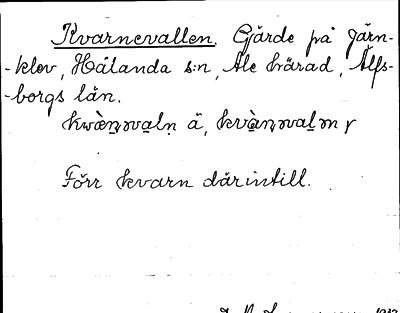 Kvarnevallen. Gärde på Järn-
-klev, Hålanda s:n, Ale härad, Älfs-
-borgs län.
kwàn̠əva̠ln̥ ä, kvàn̠əval̠ən r
Förr kvarn därintill.